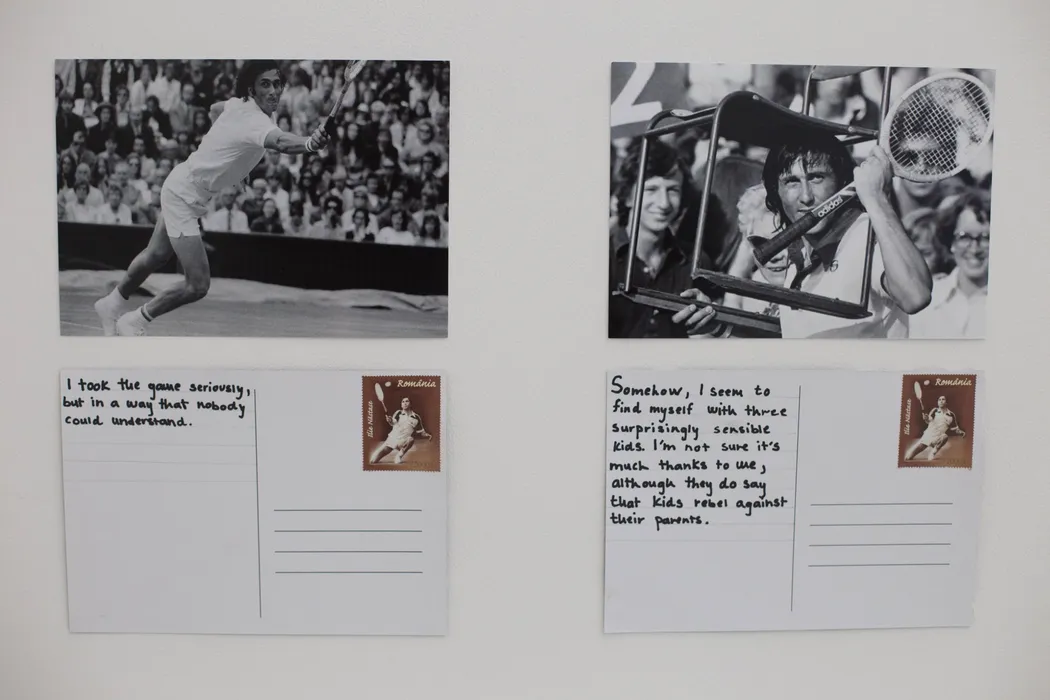 2
adidas
I took the game seriously,
but in a way that nobody
could understand.
România
Ilie Năstase
Somehow, I seem to
find myself with three
surprisingly sensible
kids. I'm not sure it's
much thanks to me,
although they do say
that kids rebel against
their parents.
România
Ilie Năstase